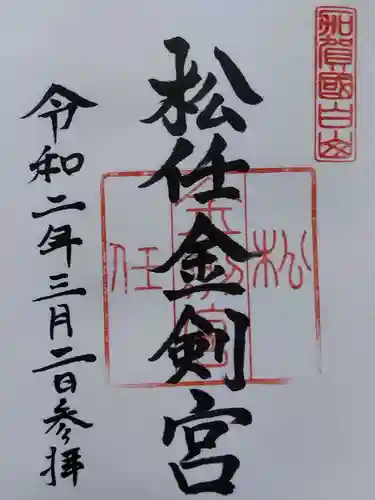 加賀國白山
松任金剣宮
松
金剣宮
任
令和二年三月二日参拝